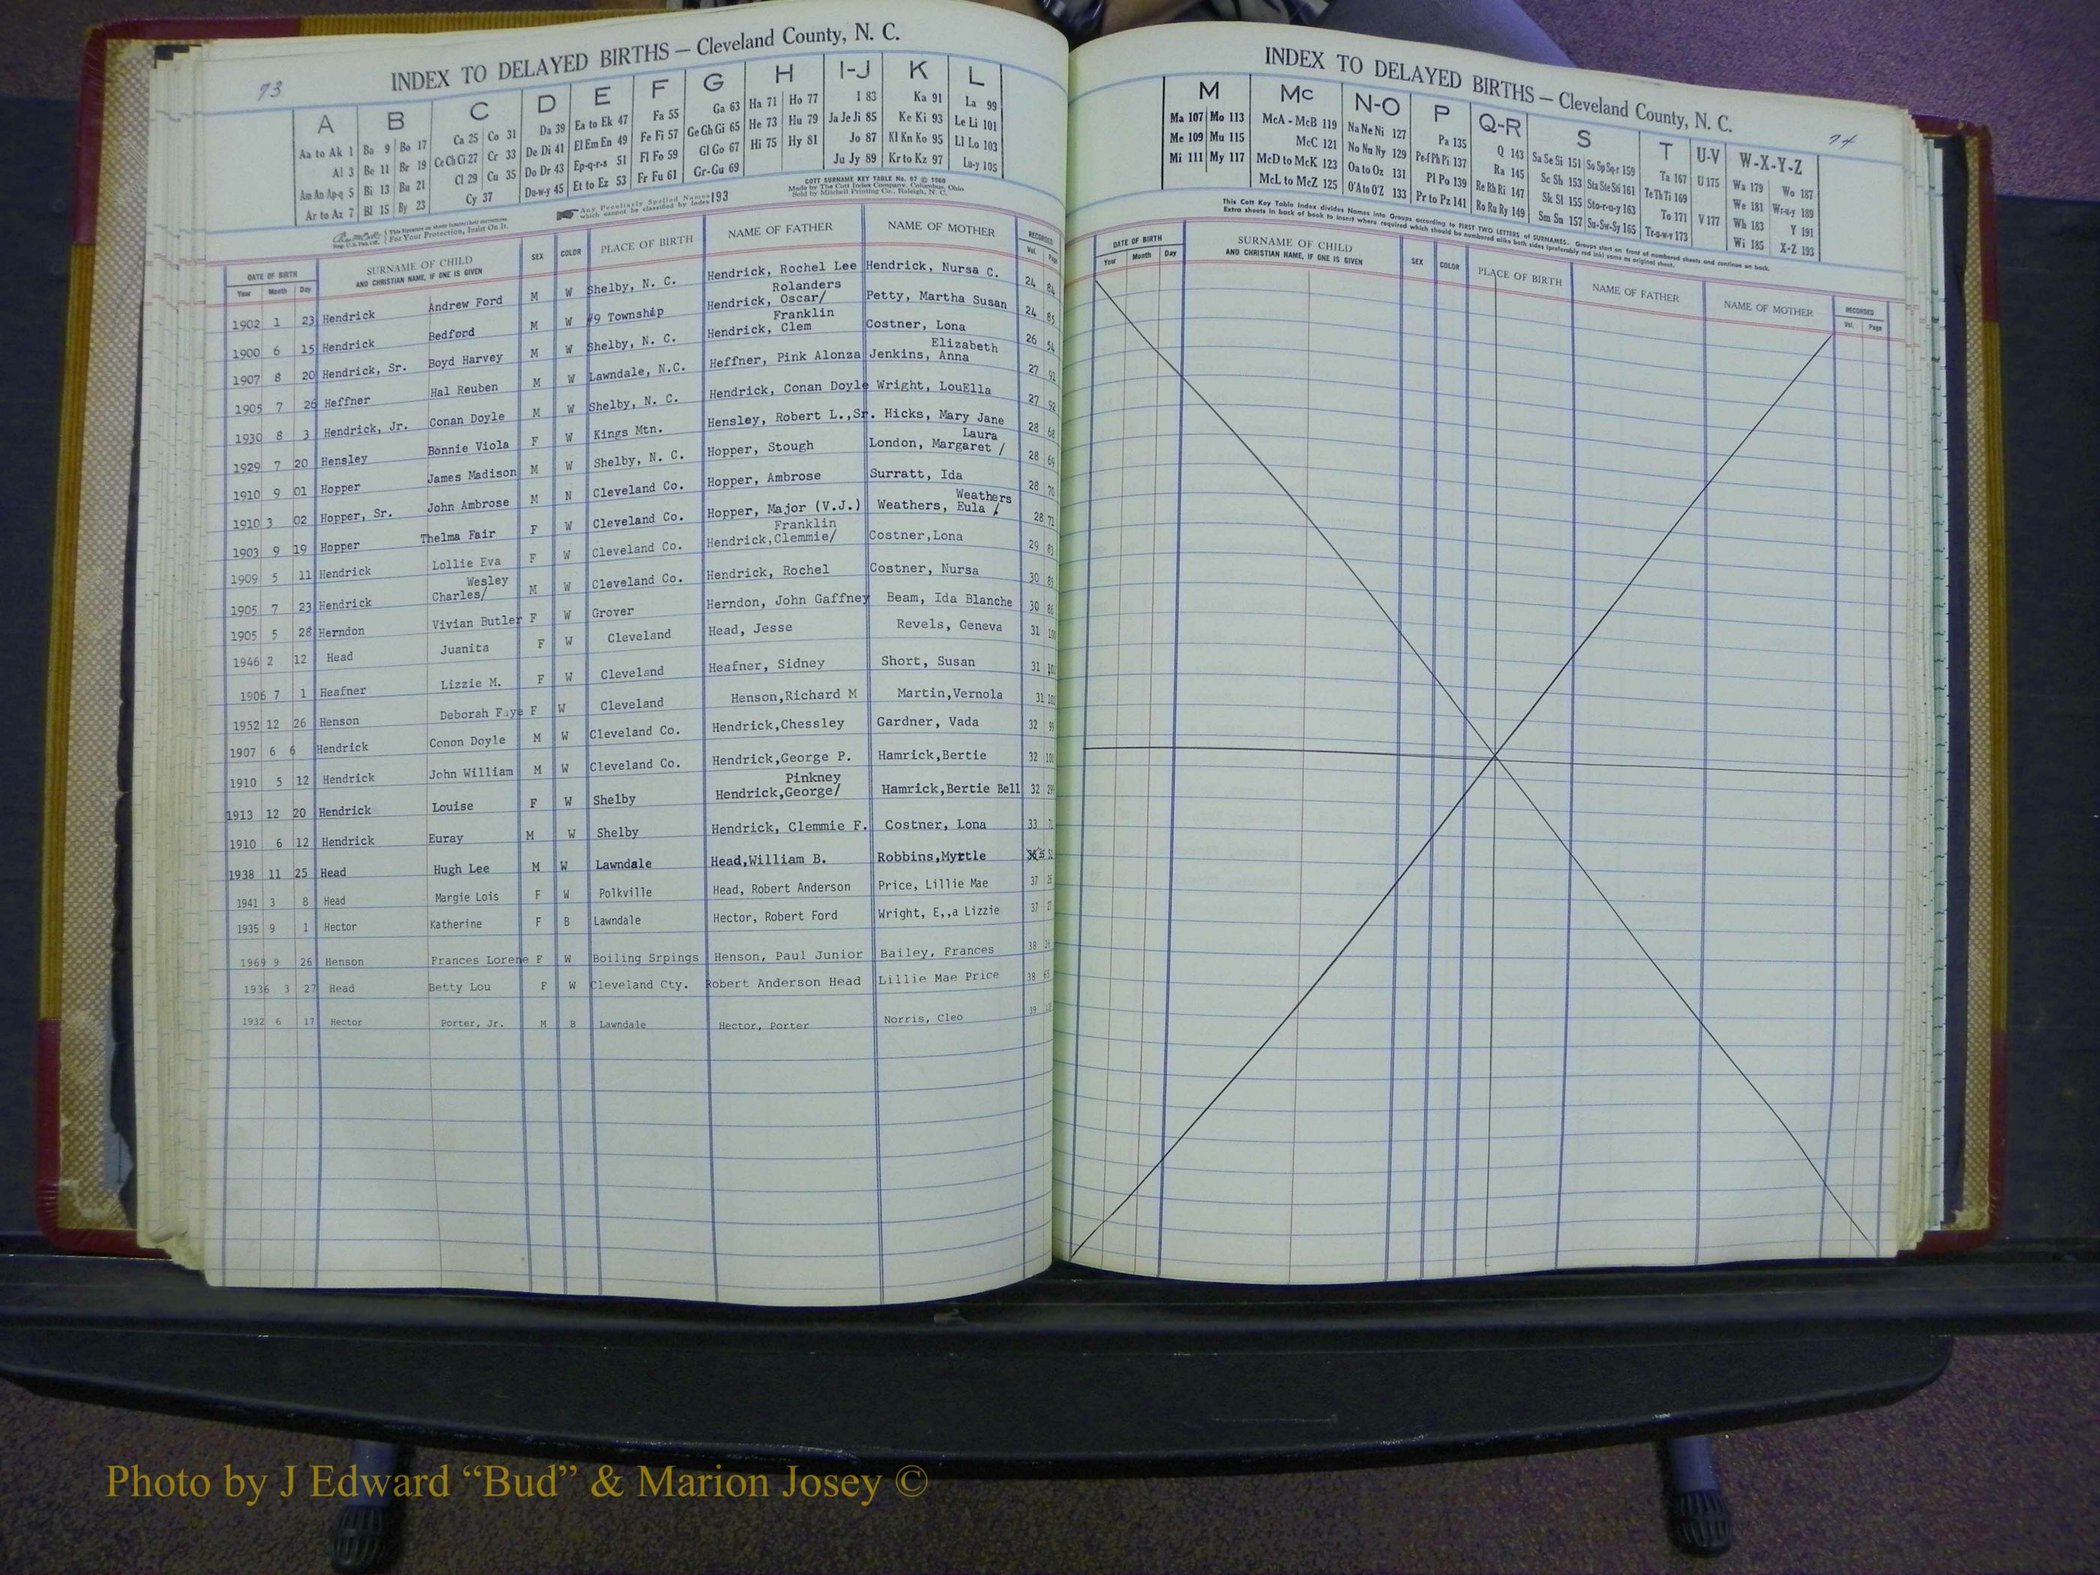 73
INDEX TO DELAYED BIRTHS — Cleveland County, N. C.
A B C D E F G H I-J K L
Aa to Ak 1 Ba 9 Bo 17 Ca 25 Co 31 Da 39 Ea to Ek 47 Fa 55 Ga 63 Ha 71 Ho 77 I 83 Ka 91 La 99
Al 3 Be 11 Br 19 Ce Ch Ci 27 Cr 33 De Di 41 El Em En 49 Fe Fi 57 Ge Gh Gi 65 He 73 Hu 79 Ja Je Ji 85 Ke Ki 93 Le Li 101
Am An Ap-q 5 Bi 13 Bu 21 Cl 29 Cu 35 Do Dr 43 Ep-q-r-s 51 Fl Fo 59 Gl Go 67 Hi 75 Hy 81 Jo 87 Kl Kn Ko 95 Ll Lo 103
Ar to Az 7 Bl 15 By 23 Cy 37 Du-w-y 45 Et to Ez 53 Fr Fu 61 Gr-Gu 69 Ju Jy 89 Kr to Kz 97 Lu-y 105
For Your Protection, Insist On It.
Any Peculiarly Spelled Names which cannot be classified by Index 193
COTT SURNAME KEY TABLE No. 97 © 1960
Made by The Cott Index Company, Columbus, Ohio
Sold by Mitchell Printing Co., Raleigh, N. C.
DATE OF BIRTH SURNAME OF CHILD SEX COLOR PLACE OF BIRTH NAME OF FATHER NAME OF MOTHER RECORDED
Year Month Day AND CHRISTIAN NAME, IF ONE IS GIVEN Vol. Page
1902 1 23 Hendrick Andrew Ford M W Shelby, N. C. Hendrick, Rochel Lee Hendrick, Nursa C. 24 84
Rolanders
1900 6 15 Hendrick Bedford M W #9 Township Hendrick, Oscar/ Petty, Martha Susan 24 85
Franklin
1907 8 20 Hendrick, Sr. Boyd Harvey M W Shelby, N. C. Hendrick, Clem Costner, Lona 26 54
Elizabeth
1905 7 26 Heffner Hal Reuben M W Lawndale, N.C. Heffner, Pink Alonza Jenkins, Anna 27
1930 8 3 Hendrick, Jr. Conan Doyle M W Shelby, N. C. Hendrick, Conan Doyle Wright, LouElla 27 92
1929 7 20 Hensley Bonnie Viola F W Kings Mtn. Hensley, Robert L.,Sr. Hicks, Mary Jane 28 68
Laura
1910 9 01 Hopper James Madison M W Shelby, N. C. Hopper, Stough London, Margaret / 28 69
1910 3 02 Hopper, Sr. John Ambrose M N Cleveland Co. Hopper, Ambrose Surratt, Ida 28 70
Weathers
1903 9 19 Hopper Thelma Fair F W Cleveland Co. Hopper, Major (V.J.) Weathers, Eula / 28 71
Franklin
1909 5 11 Hendrick Lollie Eva F W Cleveland Co. Hendrick,Clemmie/ Costner,Lona 29 83
Wesley
1905 7 23 Hendrick Charles/ M W Cleveland Co. Hendrick, Rochel Costner, Nursa 30 85
1905 5 28 Herndon Vivian Butler F W Grover Herndon, John Gaffney Beam, Ida Blanche 30 86
1946 2 12 Head Juanita F W Cleveland Head, Jesse Revels, Geneva 31
1906 7 1 Heafner Lizzie M. F W Cleveland Heafner, Sidney Short, Susan 31
1952 12 26 Henson Deborah Faye F W Cleveland Henson,Richard M Martin,Vernola 31
1907 6 6 Hendrick Conon Doyle M W Cleveland Co. Hendrick,Chessley Gardner, Vada 32
1910 5 12 Hendrick John William M W Cleveland Co. Hendrick,George P. Hamrick,Bertie 32
Pinkney
1913 12 20 Hendrick Louise F W Shelby Hendrick,George/ Hamrick,Bertie Bell 32
1910 6 12 Hendrick Euray M W Shelby Hendrick, Clemmie F. Costner, Lona 33
1938 11 25 Head Hugh Lee M W Lawndale Head,William B. Robbins,Myrtle
1941 3 8 Head Margie Lois F W Polkville Head, Robert Anderson Price, Lillie Mae 37
1935 9 1 Hector Katherine F B Lawndale Hector, Robert Ford Wright, E,,a Lizzie 37
1969 9 26 Henson Frances Lorene F W Boiling Srpings Henson, Paul Junior Bailey, Frances 38
1936 3 27 Head Betty Lou F W Cleveland Cty. Robert Anderson Head Lillie Mae Price 38
1932 6 17 Hector Porter, Jr. M B Lawndale Hector, Porter Norris, Cleo
74
INDEX TO DELAYED BIRTHS — Cleveland County, N. C.
M Mc N-O P Q-R S T U-V W-X-Y-Z
Ma 107 Mo 113 McA - McB 119 Na Ne Ni 127 Pa 135 Q 143 Sa Se Si 151 So Sp Sq-r 159 Ta 167 U 175 Wa 179 Wo 187
Me 109 Mu 115 McC 121 No Nu Ny 129 Pe-f Ph Pi 137 Ra 145 Sc Sh 153 Sta Ste Sti 161 Te Th Ti 169 We 181 Wr-u-y 189
Mi 111 My 117 McD to McK 123 Oa to Oz 131 Pl Po 139 Re Rh Ri 147 Sk Sl 155 Sto-r-u-y 163 To 171 V 177 Wh 183 Y 191
McL to McZ 125 O'A to O'Z 133 Pr to Pz 141 Ro Ru Ry 149 Sm Sn 157 Su-Sw-Sy 165 Tr-u-w-y 173 Wi 185 X-Z 193
This Cott Key Table Index divides Names into Groups according to FIRST TWO LETTERS of SURNAMES. Groups start on front of numbered sheets and continue on back.
Extra sheets in back of book to insert where required which should be numbered alike both sides (preferably red ink) same as original sheet.
DATE OF BIRTH SURNAME OF CHILD SEX COLOR PLACE OF BIRTH NAME OF FATHER NAME OF MOTHER RECORDED
Year Month Day AND CHRISTIAN NAME, IF ONE IS GIVEN Vol. Page
Photo by J Edward “Bud” & Marion Josey ©